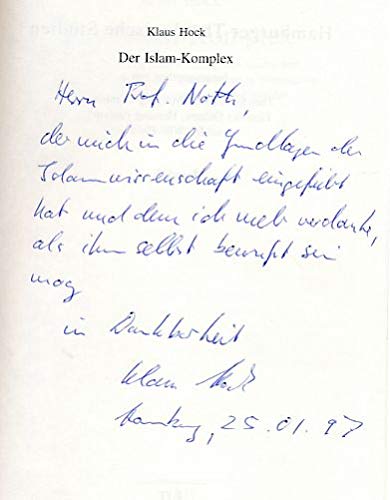 Klaus Hock
Der Islam-Komplex
Herrn Prof. Noth,
der mich in die Grundlagen der
Islamwissenschaft eingeführt
hat und dem ich mehr verdanke,
als ihm selbst bewußt sein
mag
in Dankbarkeit
Klaus Hock
Hamburg, 25.01.97